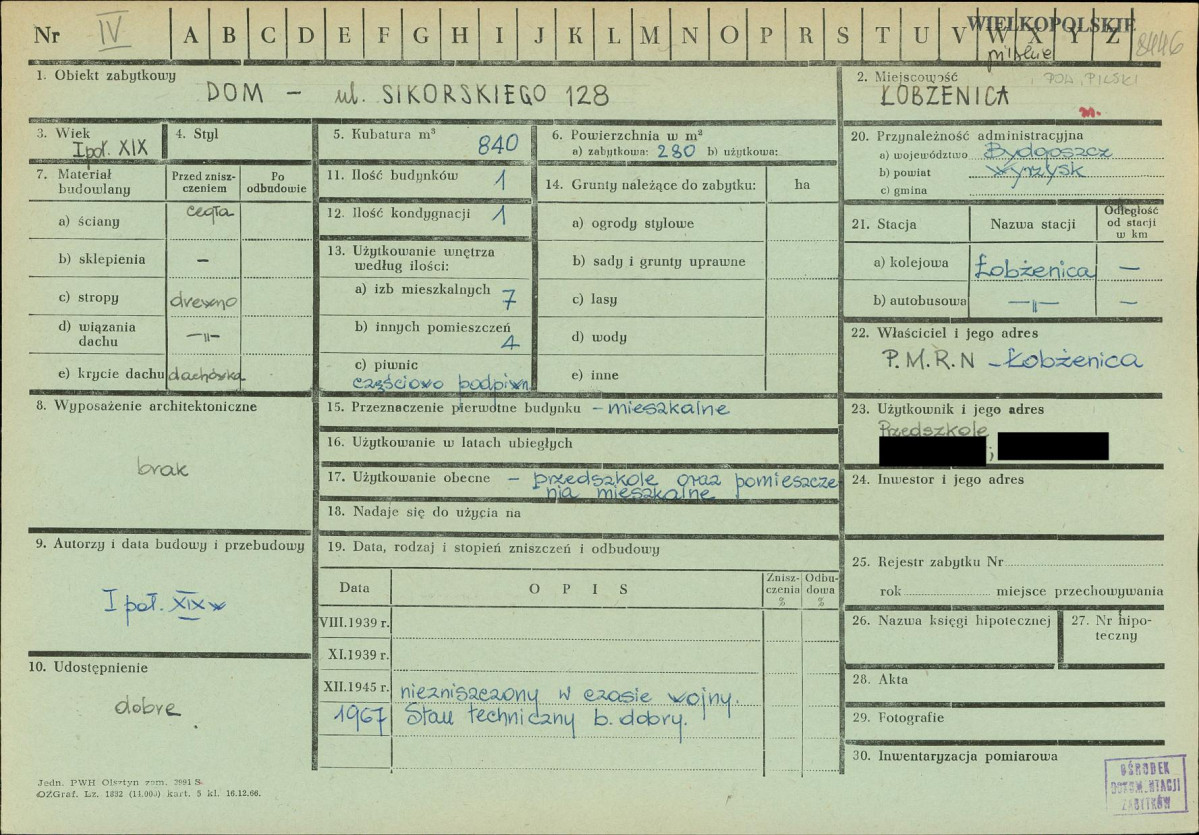 Nr IV A B C D E F G H I J K L M N O P R S T U V W X Y Z WIELKOPOLSKIE
pilskie 8446
1. Obiekt zabytkowy
DOM – ul. SIKORSKIEGO 128
2. Miejscowość POA, PILSKI
ŁOBŻENICA
m.
3. Wiek
I poł. XIX
4. Styl
5. Kubatura m³
840
6. Powierzchnia w m²
a) zabytkowa: 280 b) użytkowa:
20. Przynależność administracyjna
a) województwo Bydgoszcz
b) powiat Wyrzysk
c) gmina
7. Materiał budowlany
Przed zniszczeniem
Po odbudowie
a) ściany cegła
b) sklepienia –
c) stropy drewno
d) wiązania dachu –"–
e) krycie dachu dachówka
11. Ilość budynków 1
12. Ilość kondygnacji 1
13. Użytkowanie wnętrza
według ilości:
a) izb mieszkalnych 7
b) innych pomieszczeń
4
c) piwnic
częściowo podpiwn.
14. Grunty należące do zabytku: ha
a) ogrody stylowe
b) sady i grunty uprawne
c) lasy
d) wody
e) inne
21. Stacja Nazwa stacji Odległość
od stacji
w km
a) kolejowa Łobżenica –
b) autobusowa –"– –
22. Właściciel i jego adres
P.M.R.N – Łobżenica
8. Wyposażenie architektoniczne
brak
15. Przeznaczenie pierwotne budynku – mieszkalne
16. Użytkowanie w latach ubiegłych
17. Użytkowanie obecne – przedszkole oraz pomieszcze
nia mieszkalne
18. Nadaje się do użycia na
23. Użytkownik i jego adres
Przedszkole
;
24. Inwestor i jego adres
9. Autorzy i data budowy i przebudowy
I poł. XIX w
19. Data, rodzaj i stopień zniszczeń i odbudowy
Data O P I S Znisz-
czenia
% Odbu-
dowa
%
VIII.1939 r.
XI.1939 r.
XII.1945 r. niezniszczony w czasie wojny.
1967 Stan techniczny b. dobry.
25. Rejestr zabytku Nr
rok miejsce przechowywania
26. Nazwa księgi hipotecznej
27. Nr hipo-
teczny
10. Udostępnienie
dobre
28. Akta
29. Fotografie
30. Inwentaryzacja pomiarowa
Jedn. PWH Olsztyn zam. 2991 S.
OZGraf. Lz. 1832 (14.000) kart. 5 kl. 16.12.66.
OŚRODEK
DOKUMENTACJI
ZABYTKÓW